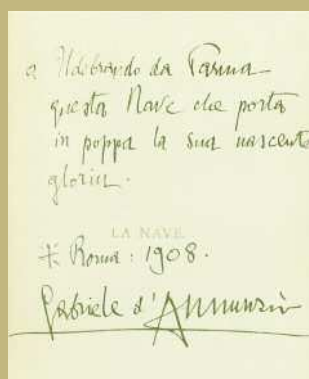 a Ildebrando da Parma
questa Nave che porta
in poppa la sua nascente
gloria.
LA NAVE
Roma: 1908.
Gabriele d'Annunzio